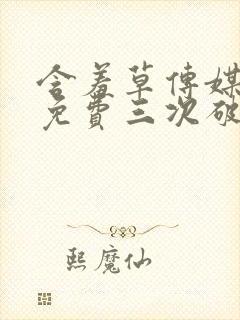 含羞草传媒
免費三次破
熙魔仙